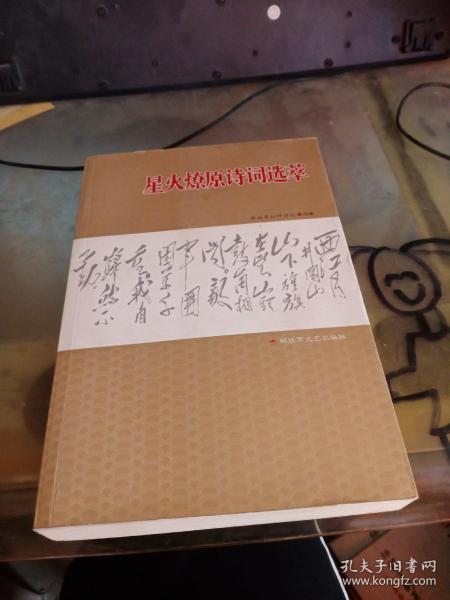 星火燎原诗词选萃
西江月
井冈山
山下旌旗
在望山头
鼓角相
闻。敌
军围
困万千
重我自
岿然不
动
解放军文艺出版社
孔夫子旧书网
www.kongfz.com